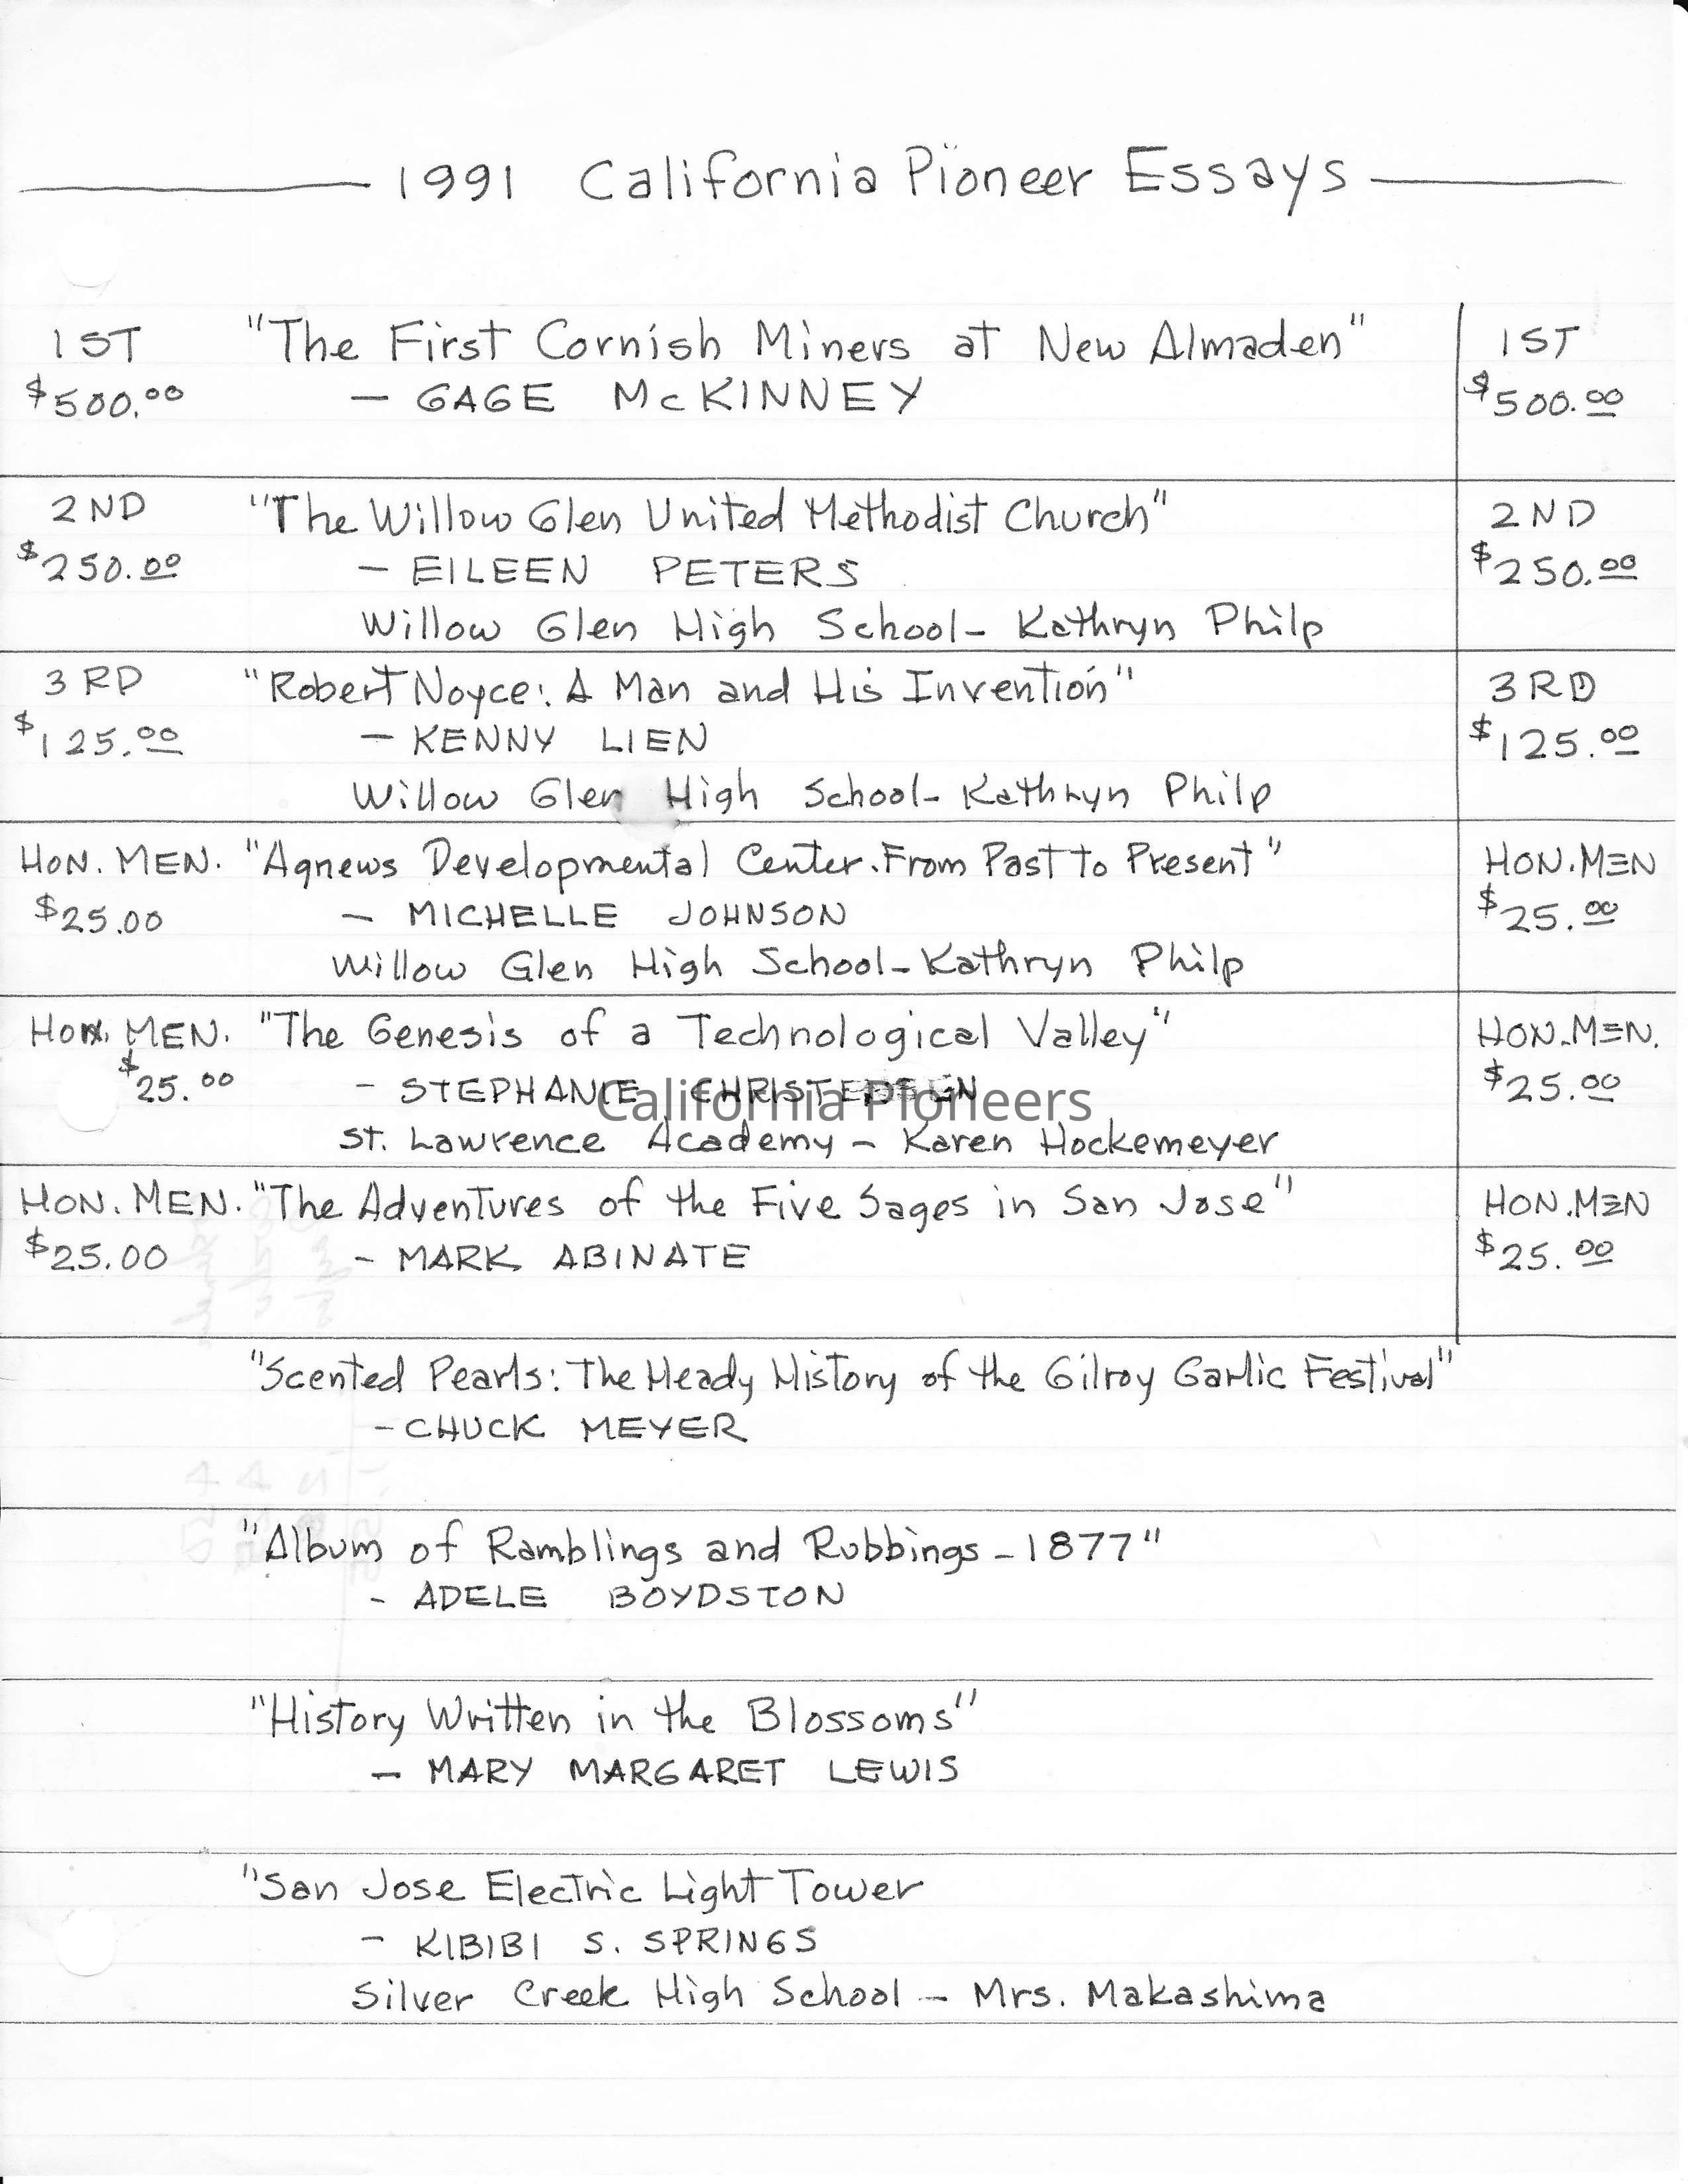 1991 California Pioneer Essays
1ST "The First Cornish Miners at New Almaden" 1ST
$500.00 — GAGE McKINNEY $500.00
2ND "The Willow Glen United Methodist Church" 2ND
$250.00 — EILEEN PETERS $250.00
Willow Glen High School - Kathryn Philp
3RD "Robert Noyce: A Man and His Invention" 3RD
$125.00 — KENNY LIEN $125.00
Willow Glen High School - Kathryn Philp
HON. MEN. "Agnews Developmental Center. From Past to Present" HON. MEN
$25.00 — MICHELLE JOHNSON $25.00
Willow Glen High School - Kathryn Philp
HON. MEN. "The Genesis of a Technological Valley" HON. MEN.
$25.00 - STEPHANIE $25.00
California Pioneers
St. Lawrence Academy - Karen Hockemeyer
HON. MEN. "The Adventures of the Five Sages in San Jose" HON. MEN
$25.00 - MARK ABINATE $25.00
"Scented Pearls: The Heady History of the Gilroy Garlic Festival"
- CHUCK MEYER
"Album of Ramblings and Rubbings - 1877"
- ADELE BOYDSTON
"History Written in the Blossoms"
— MARY MARGARET LEWIS
"San Jose Electric Light Tower
- KIBIBI S. SPRINGS
Silver Creek High School - Mrs. Makashima